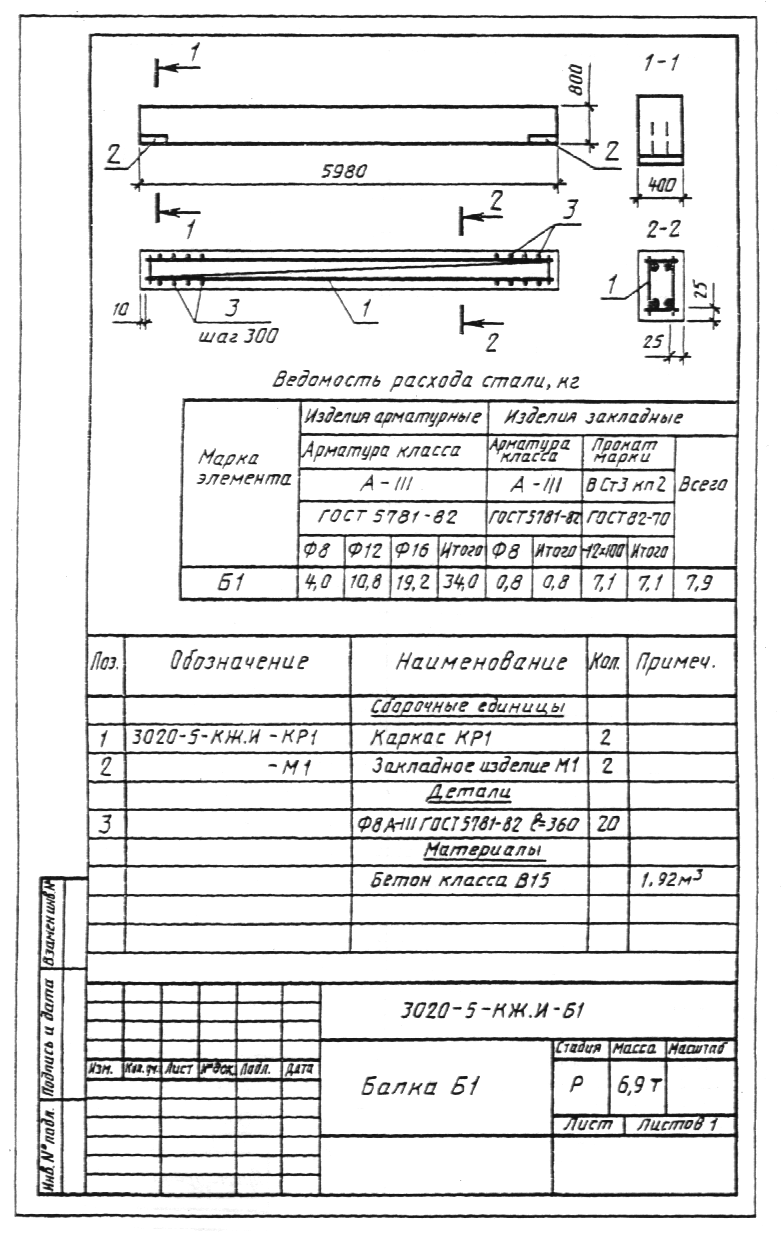 1
1-1
800
2
2
5980
400
1
2
3
2-2
1
10
3
1
25
шаг 300
2
25
Ведомость расхода стали, кг
Марка элемента
Изделия арматурные
Изделия закладные
Арматура класса
Арматура класса
Прокат марки
Всего
А-III
А-III
ВСт3 кп2
ГОСТ 5781-82
ГОСТ5781-82
ГОСТ82-70
Ф8 Ф12 Ф16 Итого Ф8 Итого -12×100 Итого
Б1 4,0 10,8 19,2 34,0 0,8 0,8 7,1 7,1 7,9
Поз. Обозначение Наименование Кол. Примеч.
Сборочные единицы
1 3020-5-КЖ.И -КР1 Каркас КР1 2
2 -М1 Закладное изделие М1 2
Детали
3 Ф8А-III ГОСТ5781-82 ℓ=360 20
Материалы
Бетон класса В15 1,92м³
3020-5-КЖ.И-Б1
Изм. Кол.уч. Лист №док. Подл. Дата
Балка Б1
Стадия Масса Масштаб
Р 6,9 т
Лист Листов 1
Взамен инв.№
Подпись и дата
Инв.№ подл.